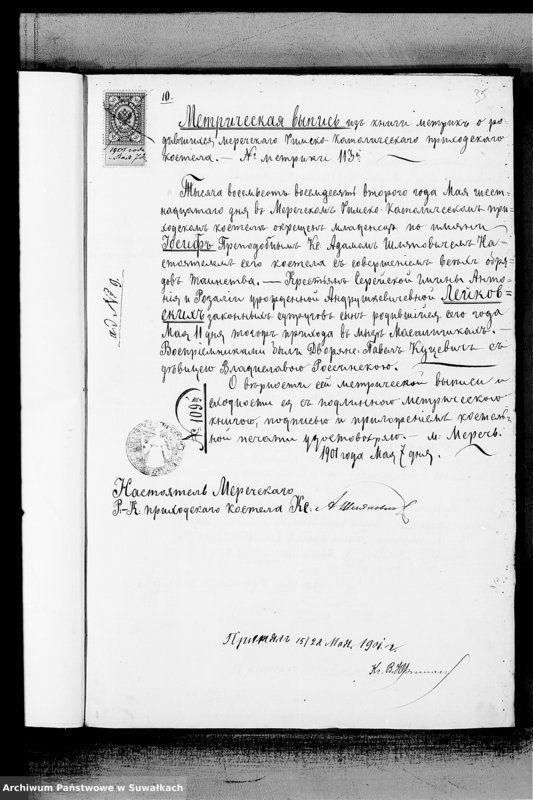 10.
25
1901 года
Мая 7 д.
Метрическая выпись изъ книги метрикъ о ро-
дившихся Меречскаго Римско-Католическаго приходскаго
костела. — № метрики 113й
Тысяча восемьсотъ восемьдесятъ второго года Мая шест-
надцатаго дня въ Меречскомъ Римско-Католическомъ при-
ходскомъ костелѣ окрещенъ младенецъ по имени
Іосифъ Преподобнымъ Кс. Адамомъ Настоятелемъ
его костела съ совершеніемъ всѣхъ обря-
довъ таинства. — Крестьянъ Серейской гмины Анто-
нія и Розаліи урожденной Андрушкевичевной Лейков-
скихъ законныхъ супруговъ сынъ родившійся сего года
Мая 11 дня тогожъ прихода въ
Воспріемниками были Дворяне: Павелъ Куцевичъ съ
дѣвицею Владиславою Россинскою.
О вѣрности сей метрической выписи и
сходности ея съ подлинною метрическою
книгою, подписью и приложеніемъ костель-
ной печати удостовѣряю. — м. Меречь.
1901 года Мая 7 дня.
№ 109й
къ № 9
Настоятель Меречскаго
Р-К. приходскаго костела Кс.
15/28 Мая 1901 г.
Кс. В.
Archiwum Państwowe w Suwałkach